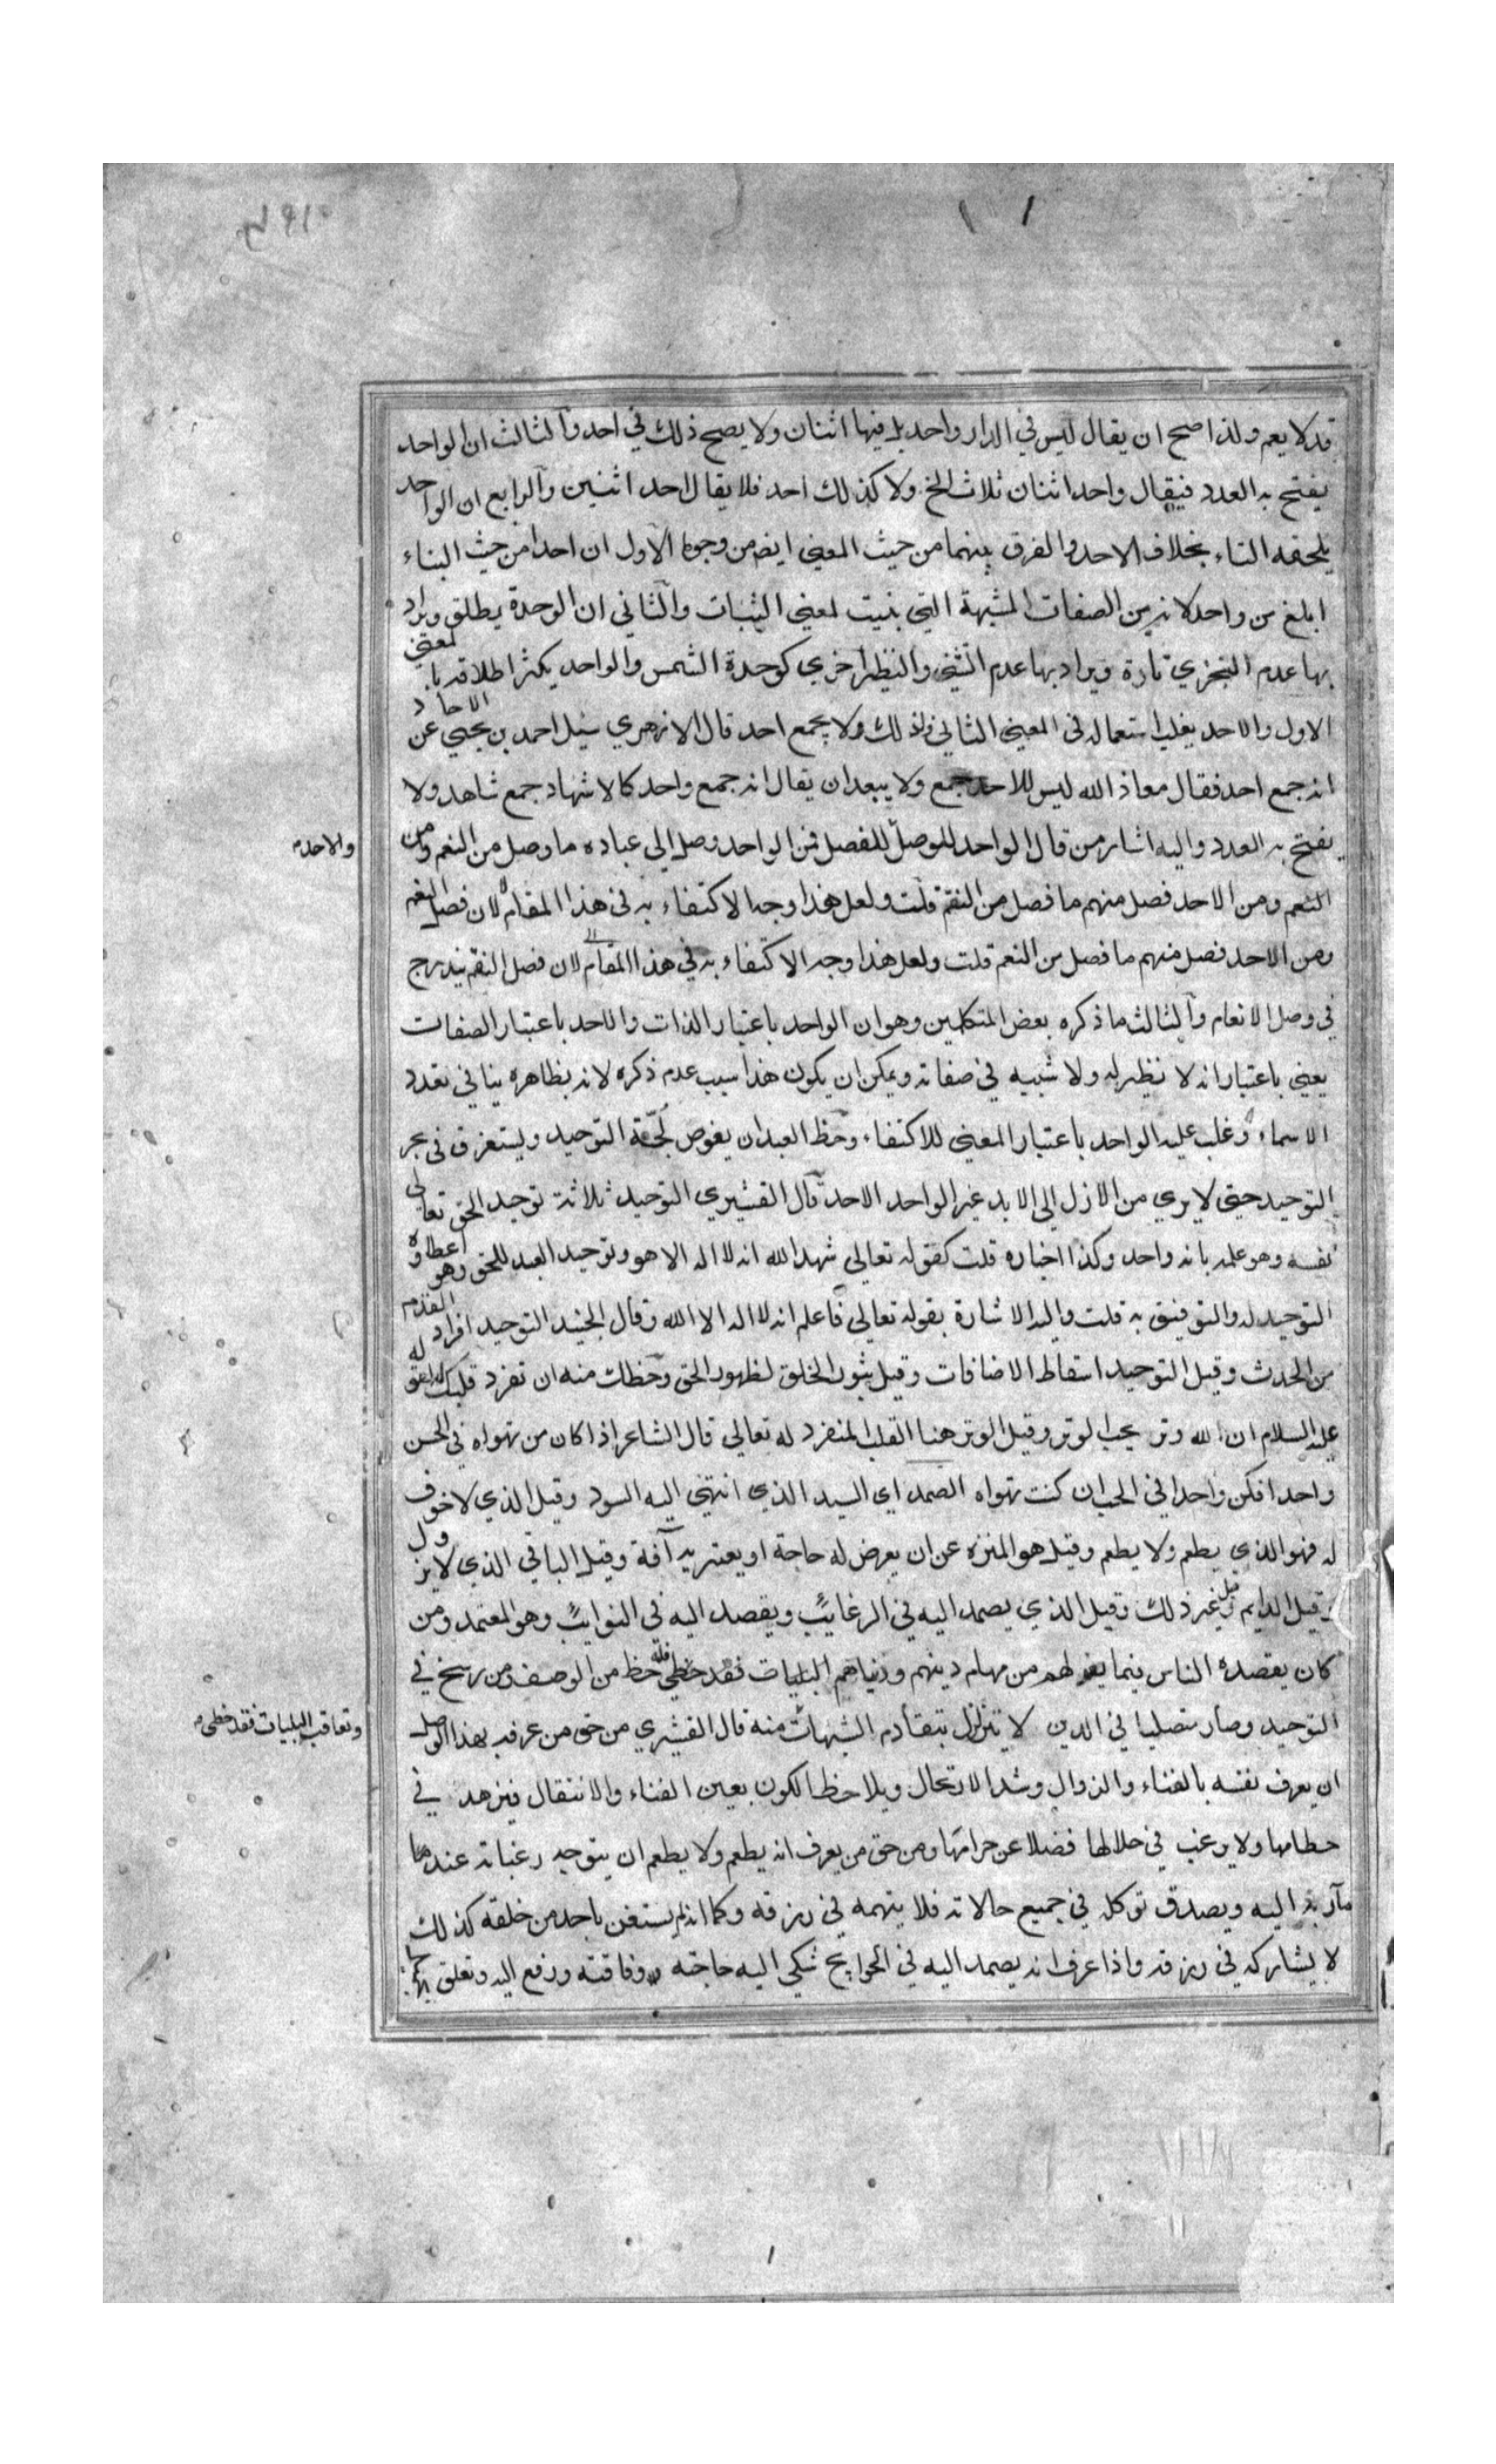 قد لا يعم ولذا صح ان يقال ليس في الدار واحد بل فيها اثنان ولا يصح ذلك في احد والثالث ان الواحد
يفتح به العدد فيقال واحد اثنان ثلاث الخ ولا كذلك احد فلا يقال احد اثنين والرابع ان الواحد
يلحقه التاء بخلاف الاحد والفرق بينهما من حيث المعنى ايضا من وجوه الاول ان احدا من حيث البناء
ابلغ من واحد لانه من الصفات المشبهة التي بنيت لمعنى الثبات والثاني ان الوحدة يطلق ويراد
بها عدم التجزي تارة ويراد بها عدم التثني والنظير اخري كوحدة الشمس والواحد يكثر اطلاقه بالمعنى
الاول والاحد يغلب استعماله في المعنى الثاني ولذلك ولا يجمع احد قال الازهري سئل احمد بن يحيى عن الاحاد
انه جمع احد فقال معاذ الله ليس للاحد جمع ولا يبعد ان يقال انه جمع واحد كالاشهاد جمع شاهد ولا
يفتح به العدد واليه اشار من قال الواحد للوصل للفصل فمن الواحد وصل الى عباده ما وصل من النعم ومن
والاحد
النعم ومن الاحد فصل منهم ما فصل من النقم قلت ولعل هذا وجه الاكتفاء به في هذا المقام لان فصل النقم
ومن الاحد فصل منهم ما فصل من النعم قلت ولعل هذا وجه الاكتفاء به في هذا المقام لان فصل النقم يندرج
في وصل الانعام والثالث ما ذكره بعض المتكلمين وهو ان الواحد باعتبار الذات والاحد باعتبار الصفات
يعني باعتبار انه لا نظير له ولا شبيه في صفاته ويمكن ان يكون هذا سبب عدم ذكره لانه بظاهره ينافي تعدد
الاسماء وغلب عليه الواحد باعتبار المعنى للاكتفاء وحظ العبد ان يغوص لجة التوحيد ويستغرق في بحر
التوحيد حتى لا يري من الازل الى الابد غير الواحد الاحد قال القشيري التوحيد ثلاثة توحيد الحق تعالى
نفسه وهو علمه بانه واحد وكذا اخباره قلت كقوله تعالى شهد الله انه لا اله الا هو وتوحيد العبد للحق وهو اعطاؤه
التوحيد له والتوفيق به قلت واليه الاشارة بقوله تعالى فاعلم انه لا اله الا الله وقال الجنيد التوحيد افراد القدم
من الحدث وقيل التوحيد اسقاط الاضافات وقيل ثبور الخلق لظهور الحق وحظك منه ان تفرد قلبك له
عليه السلام ان الله وتر يحب الوتر وقيل الوتر هنا القلب المنفرد له تعالى قال الشاعر اذا كان من تهواه في الحسن
واحدا فكن واحدا في الحب ان كنت تهواه الصمد اي السيد الذي انتهى اليه السود وقيل الذي لا خوف
له فهو الذي يطعم ولا يطعم وقيل هو المنزه عن ان يعرض له حاجة او يعتريه آفة وقيل الباقي الذي لا يزول
وقيل الدايم وقيل غير ذلك وقيل الذي يصمد اليه في الرغايب ويقصد اليه في النوايب وهو المعتمد ومن
كان يقصده الناس فيما يعن لهم من مهام دينهم ودنياهم البليات فقد حظي فله حظ من الوصف ومن رسخ في
وتعاقب البليات فقد حظي
التوحيد وصار متصلبا في الدين لا يتزلزل بتقادم الشبهات منه قال القشيري من حق من عرفه بهذا الوصف
ان يعرف نفسه بالفناء والزوال وشد الارتحال ويلاحظ الكون بعين الفناء والانتقال فيزهد في
حطامها ولا يرغب في حلالها فضلا عن حرامها ومن حق من يعرف انه يطعم ولا يطعم ان يتوجه رغباته عند
مآربه اليه ويصدق توكله في جميع حالاته فلا يتهمه في رزقه وكما انه لم يستعن باحد من خلقه كذلك
لا يشاركه في رزقه واذا عرف انه يصمد اليه في الحوايج شكى اليه حاجته وفاقته ورفع اليه وتعلق